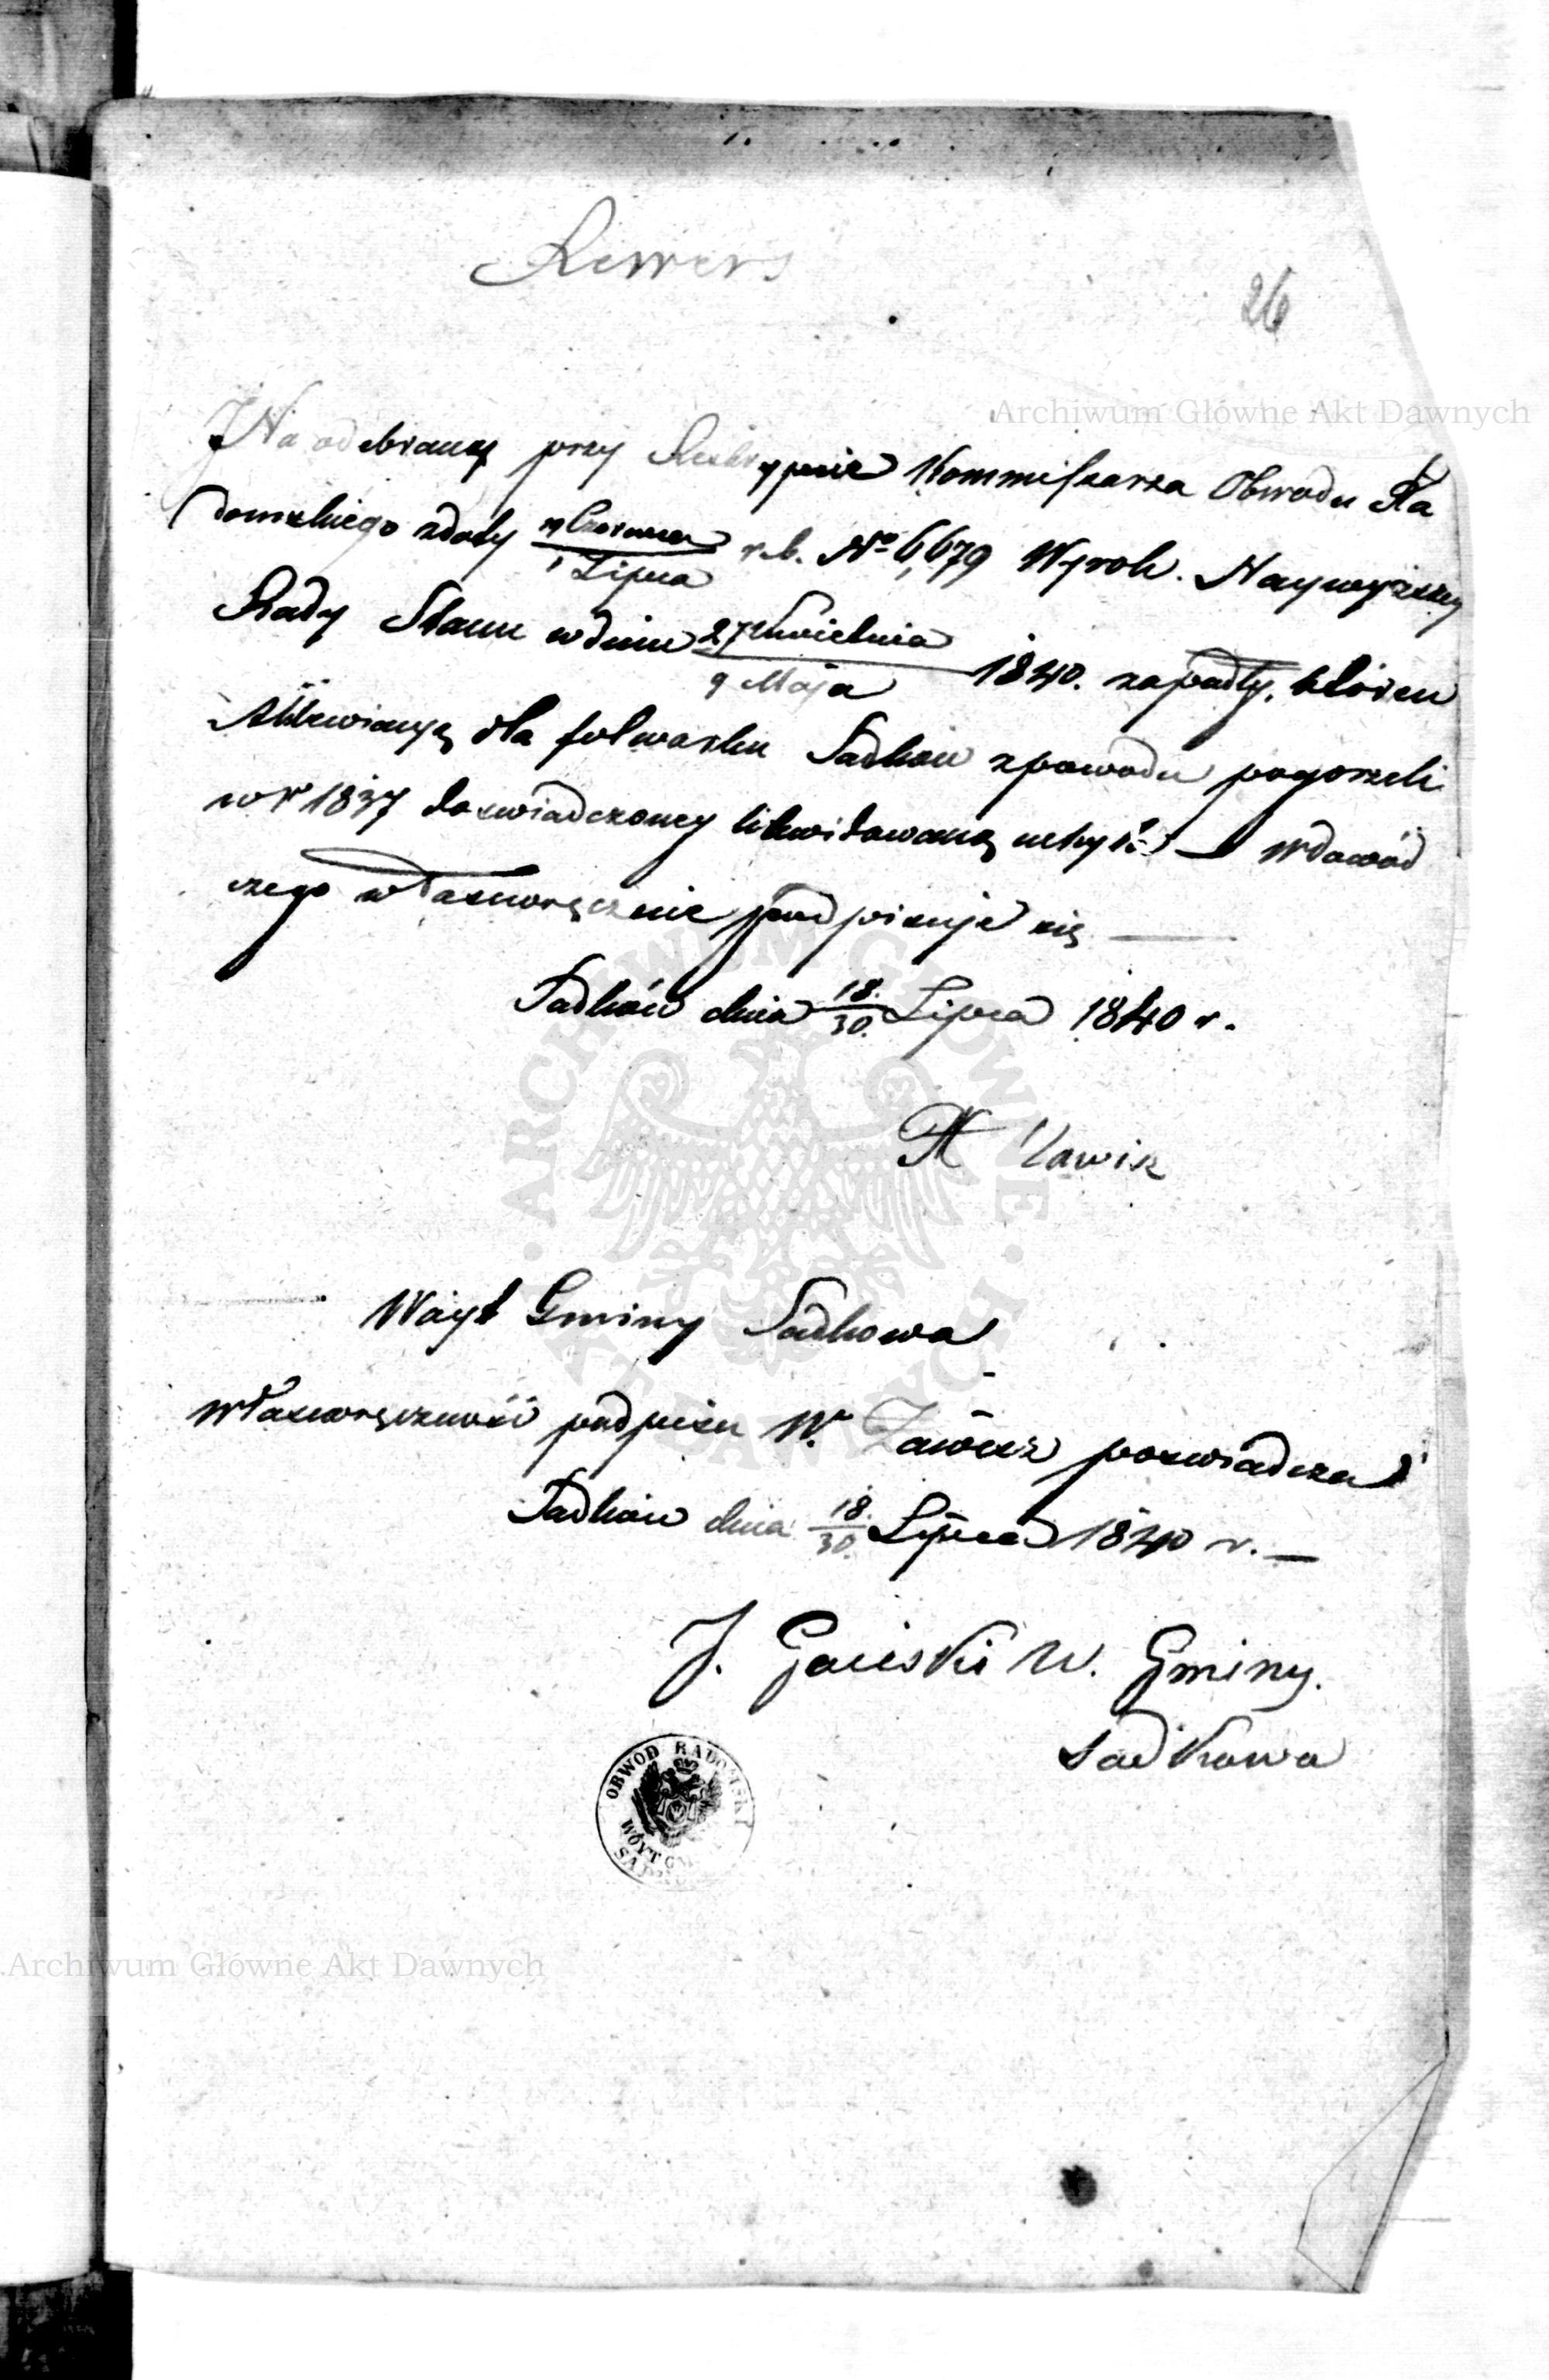 Rewers
26
Archiwum Główne Akt Dawnych
Na odebrany przy Reskrypcie Kommissarza Obwodu Ra
domskiego zdaty 19 Czerwca / 1 Lipca r.b. No 6,679 Wyrok. Naywyższey
Rady Stanu w dniu 27 Kwietnia / 9 Maja 1840. zapadły, którem
dla folwarku Sadków zpowodu pogorzeli
w r 1837 doświadczoney likwidowaną uchylił — Wdowód
czego własnoręcznie podpisuje się —
Sadków dnia 18./30. Lipca 1840 r.
ARCHIWUM GŁÓWNE AKT DAWNYCH
Woyt Gminy Sadkowa
własnoręczność podpisu W. poswiadcza
Sadków dnia 18./30. Lipca 1840 r. —
J. W. Gminy.
Sadkowa
OBWOD RADOMSKI
WÓYT
Archiwum Główne Akt Dawnych